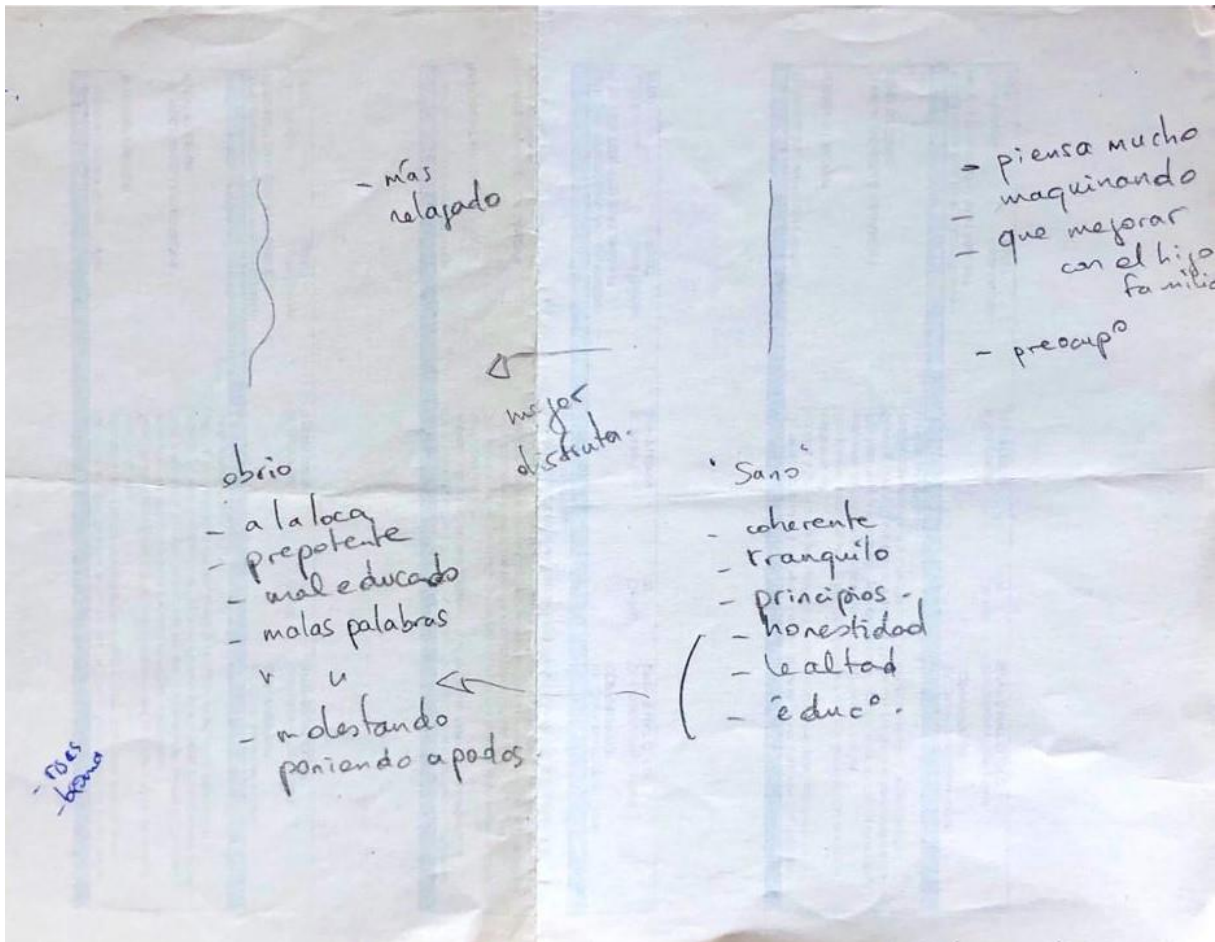 - más
relajado
obrio
- a la loca
- prepotente
- mal educado
- malas palabras
- molestando
poniendo apodos.
mejor
disfruta.
- piensa mucho
- maquinando
- que mejorar
con el hijo
familia
- preocupº
"Sano"
- coherente
- tranquilo
- principios -
- honestidad
- lealtad
- educº.